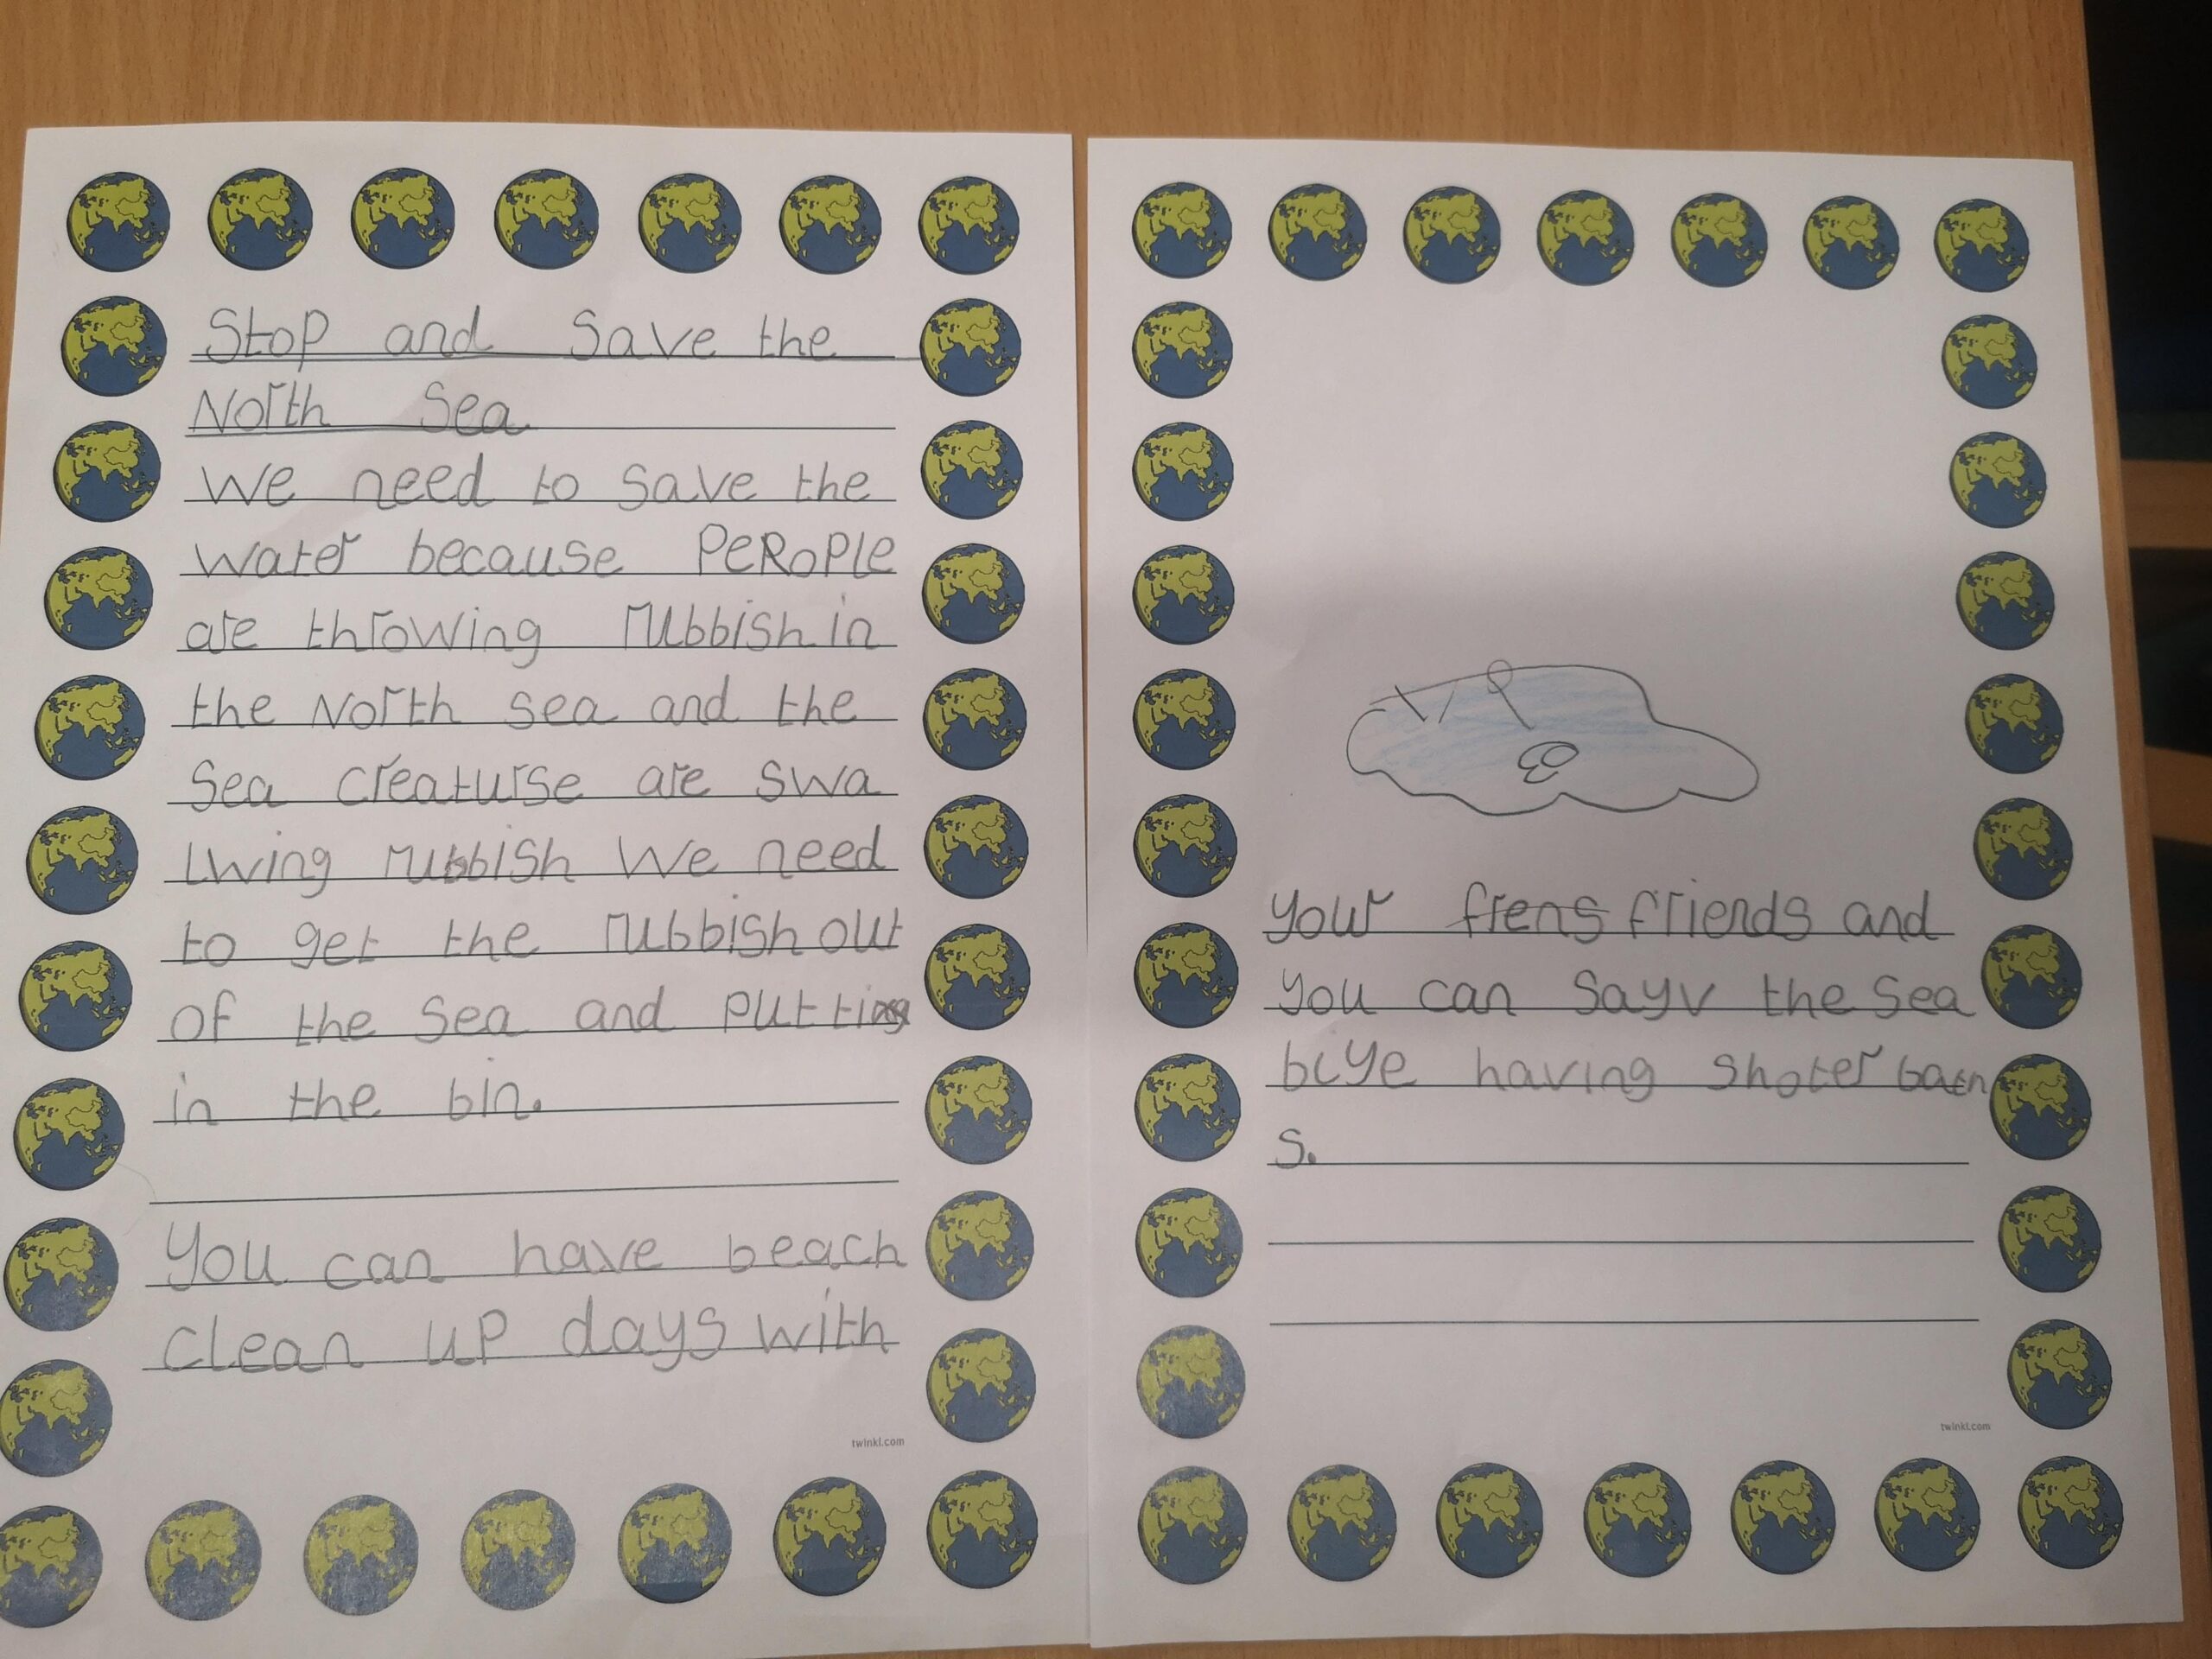 Stop and Save the
North Sea
We need to save the
water because PeRople
are throwing rubbish in
the North sea and the
Sea creaturse are swa
lwing rubbish We need
to get the rubbish out
of the sea and putting
in the bin.
You can have beach
clean up days with
twinkl.com
your frens friends and
you can sayv the sea
biye having shoter baen
s.
twinkl.com